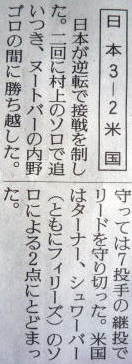 日本3―2米国
日本が逆転で接戦を制し
た。二回に村上のソロで追
いつき、ヌートバーの内野
ゴロの間に勝ち越した。
守っては7投手の継投で
リードを守り切った。米国
はターナー、シュワーバー
(ともにフィリーズ)のソ
ロによる2点にとどまっ
た。